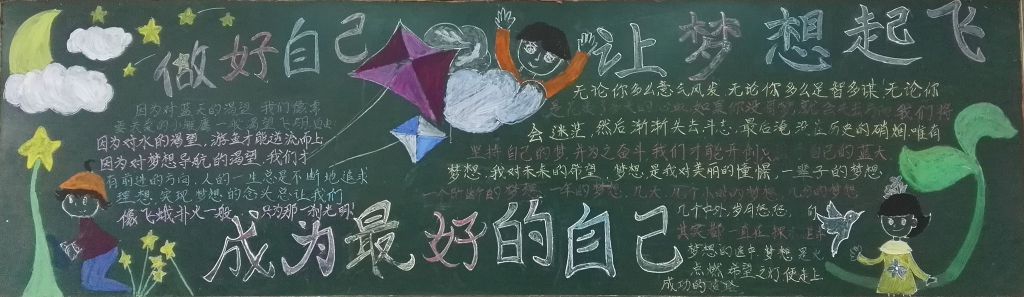 做好自己
让梦想起飞
因为对蓝天的渴望,我们像鸟
因为对水的渴望,游鱼才能逆流而上
因为对梦想导航的渴望,我们才
有前进的方向,人的一生总是不断地追求
理想,实现梦想的念头总让我们
像飞蛾扑火一般,只为那一刻光明!
无论你多么意么风发 无论你多么足智多谋 无论你
我们将
会迷茫,然后渐渐失去斗志,最后淹没在历史的硝烟唯有
坚持自己的梦并为之奋斗我们才能开创 自己的蓝天
梦想,我对未来的希望,梦想,是我对美丽的憧憬,一辈子的梦想
一个阶断的梦想,一年的梦想,几天,几个小时的梦想,几分的梦想
几个中外,岁月悠悠,
其实都一直在
梦想的途中 梦想是火
点燃希望之灯使走上
成功的道路
成为最好的自己